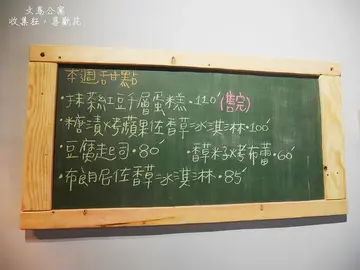 文鳥公寓
收集狂，尋歡芘
本週甜點
·抹茶紅豆千層蛋糕·110' (售完)
·糖漬烤蘋果佐香草冰淇淋·100'
·豆腐起司·80' ·香草籽烤布蕾·60'
·布朗尼佐香草冰淇淋·85'